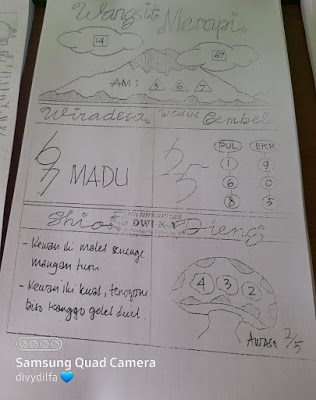 Wangsit Merapi
14
67
AM : 5 6 7
Wiradesa, Wedus Gembel
MADU
25
PUL EKR
1 9
6 0
8 5
Shio Dieng
DWI-KA
- Kewan iki males senenge
mangan turu.
4 3 2
- Kewan iki kuat, tenogone
biso kanggo golek duit.
Awas 2/5
Samsung Quad Camera
divydilfa 💙